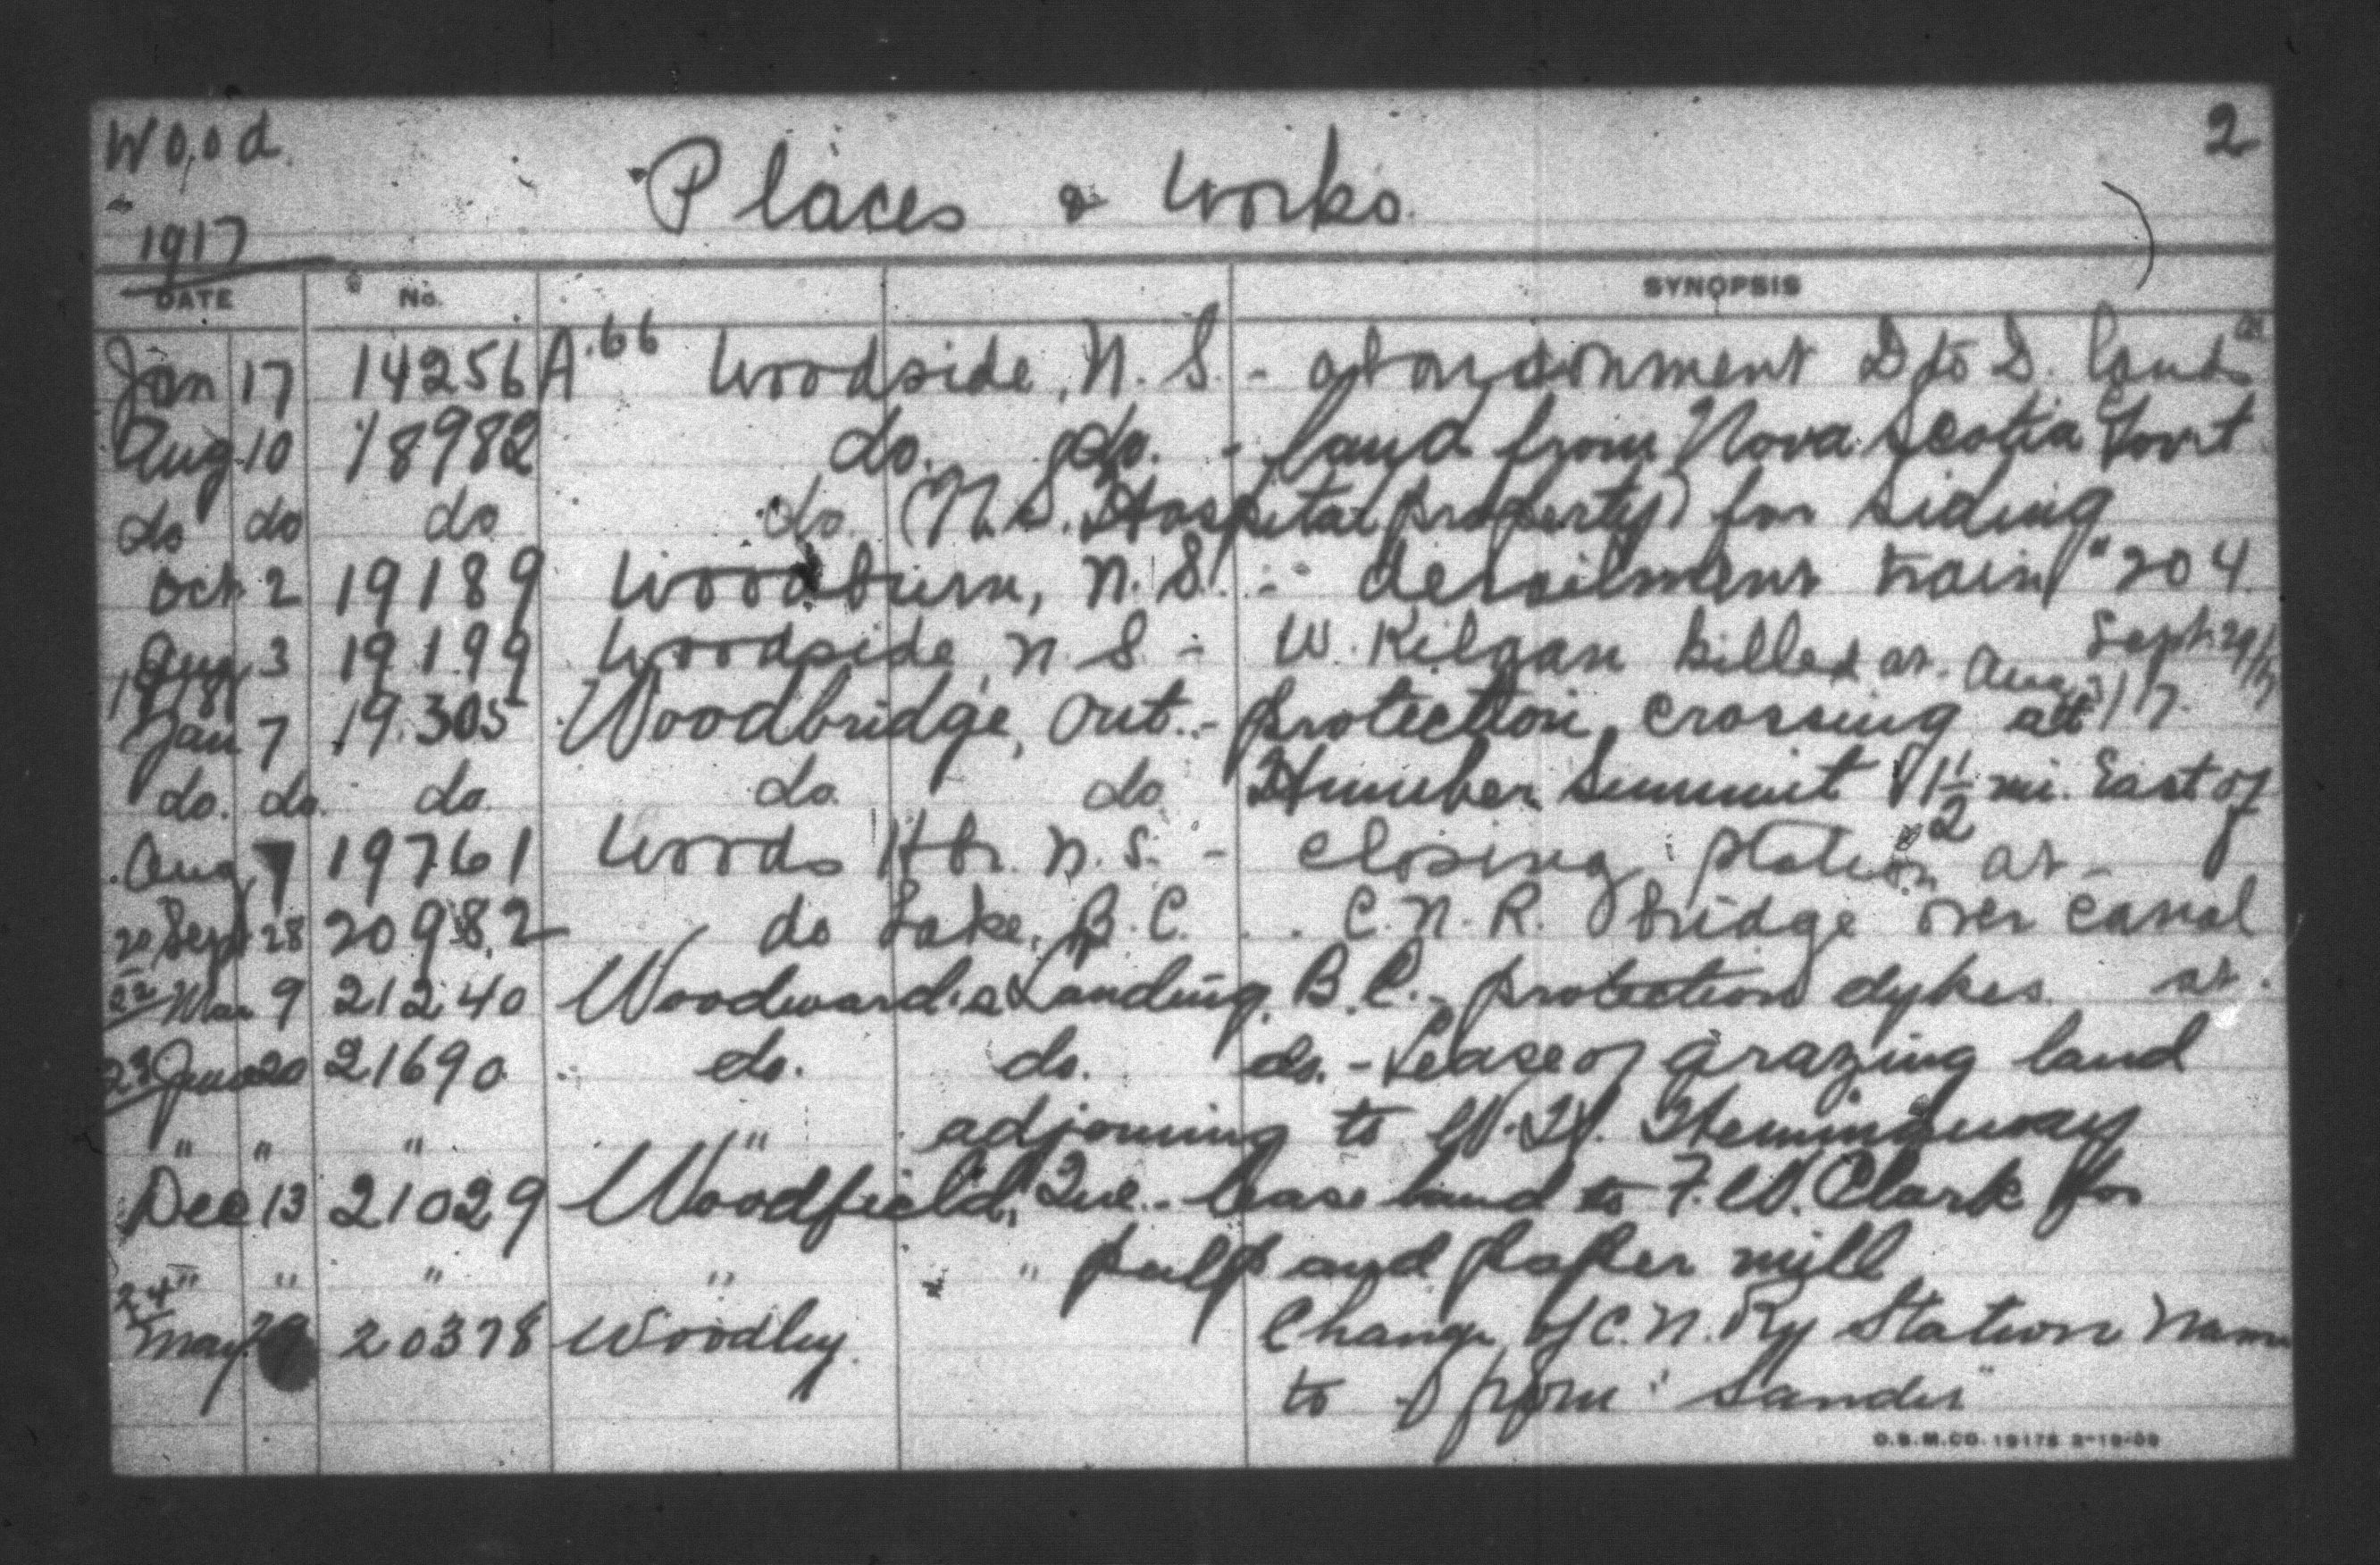 Wood. 2
Places & Works.
1917
DATE No. SYNOPSIS
Jan 17 14256 A.66 Woodside, N.S. - abandonment D to D. lands at
Aug 10 18982 do. do. - land from Nova Scotia Govt
do do do do. (N.S. Hospital property) for siding
Oct 2 19189 Woodburn, N.S. - derailment train "204
Sept. 29/17
Aug 3 19199 Woodside, N.S. - W. Kilgan killed at. Aug 17
1918
Jan 7 19305 Woodbridge, Ont. - protection, crossing at
do. do. do. do. do. Humber Summit 1 1/2 mi. East of
Aug 7 19761 Woods Hbr. N.S. - closing station at -
20 Sept 28 20982 do Lake, B.C. .. C.N.R. bridge over canal
22 Mar 9 21240 Woodward's Landing, B.C. - protection dykes at.
23 June 20 21690 do. do. do. - Lease of grazing land
" " " " adjoining to W.H. Hemingway
Dec 13 21029 Woodfield, Que. - lease land to F.W. Clark for
" " " " " pulp and paper mill
24
May 29 20378 Woodley. Change of C.N. Ry Station Name
to & from "Sander"
O.S.M.CO. 19175 2-19-09